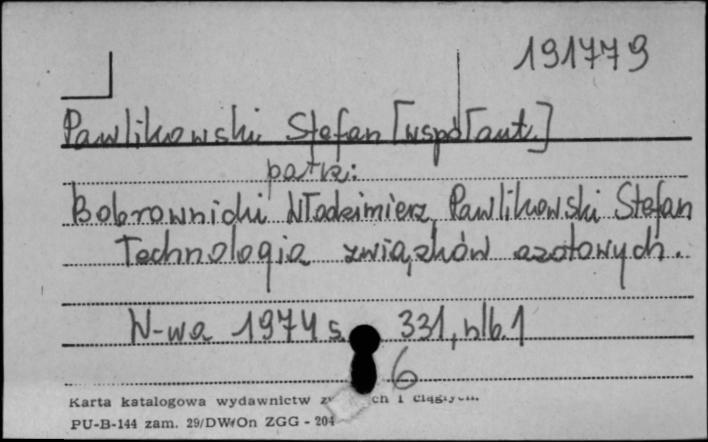 191779
Pawlikowski Stefan [współaut.]
patrz:
Bobrownicki Włodzimierz, Pawlikowski Stefan
Technologia związków azotowych.
W-wa 1974 s. 331, nlb. 1
6
Karta katalogowa wydawnictw ch i ciągłych.
PU-B-144 zam. 29/DW/On ZGG - 204